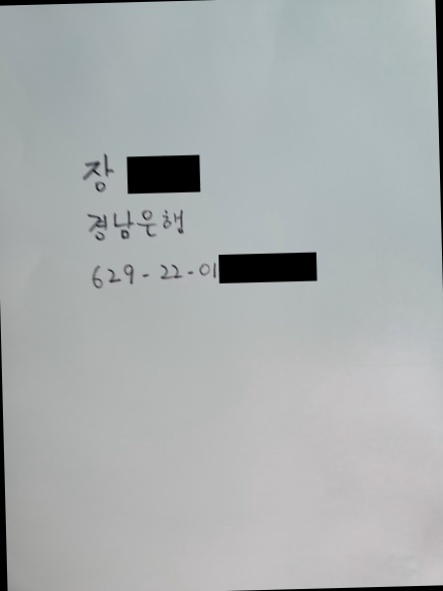 장
경남은행
629-22-01